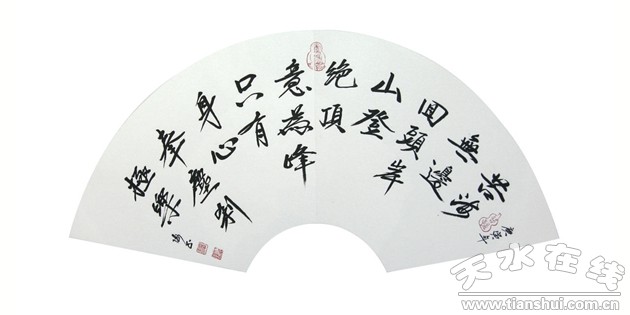 苦海
無邊
回頭岸
山登
绝頂
意為峰
只有
身心
奉塵剎
極樂
天水在线
www.tianshui.com.cn